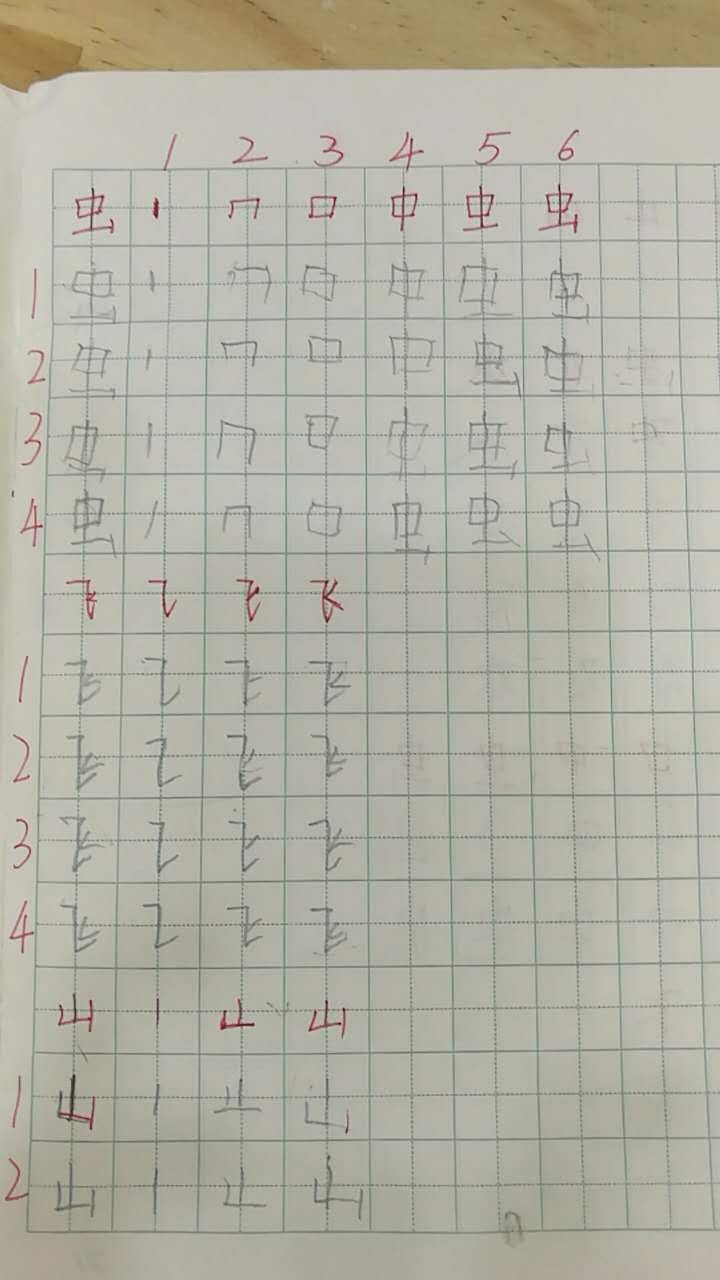 1 2 3 4 5 6
虫 丨 冂 口 中 虫
1 虫 丨 冂 口 中 虫
2 虫 丨 冂 口 中 虫 虫
3 虫 丨 冂 口 中 虫 虫
4 虫 丨 冂 口 虫 虫 虫
飞 乁 飞 飞
1 飞 乁 飞 飞
2 飞 乁 飞 飞
3 飞 乁 飞 飞
4 飞 乁 飞 飞
山 丨 山
1 山 丨 山
2 山 丨 山